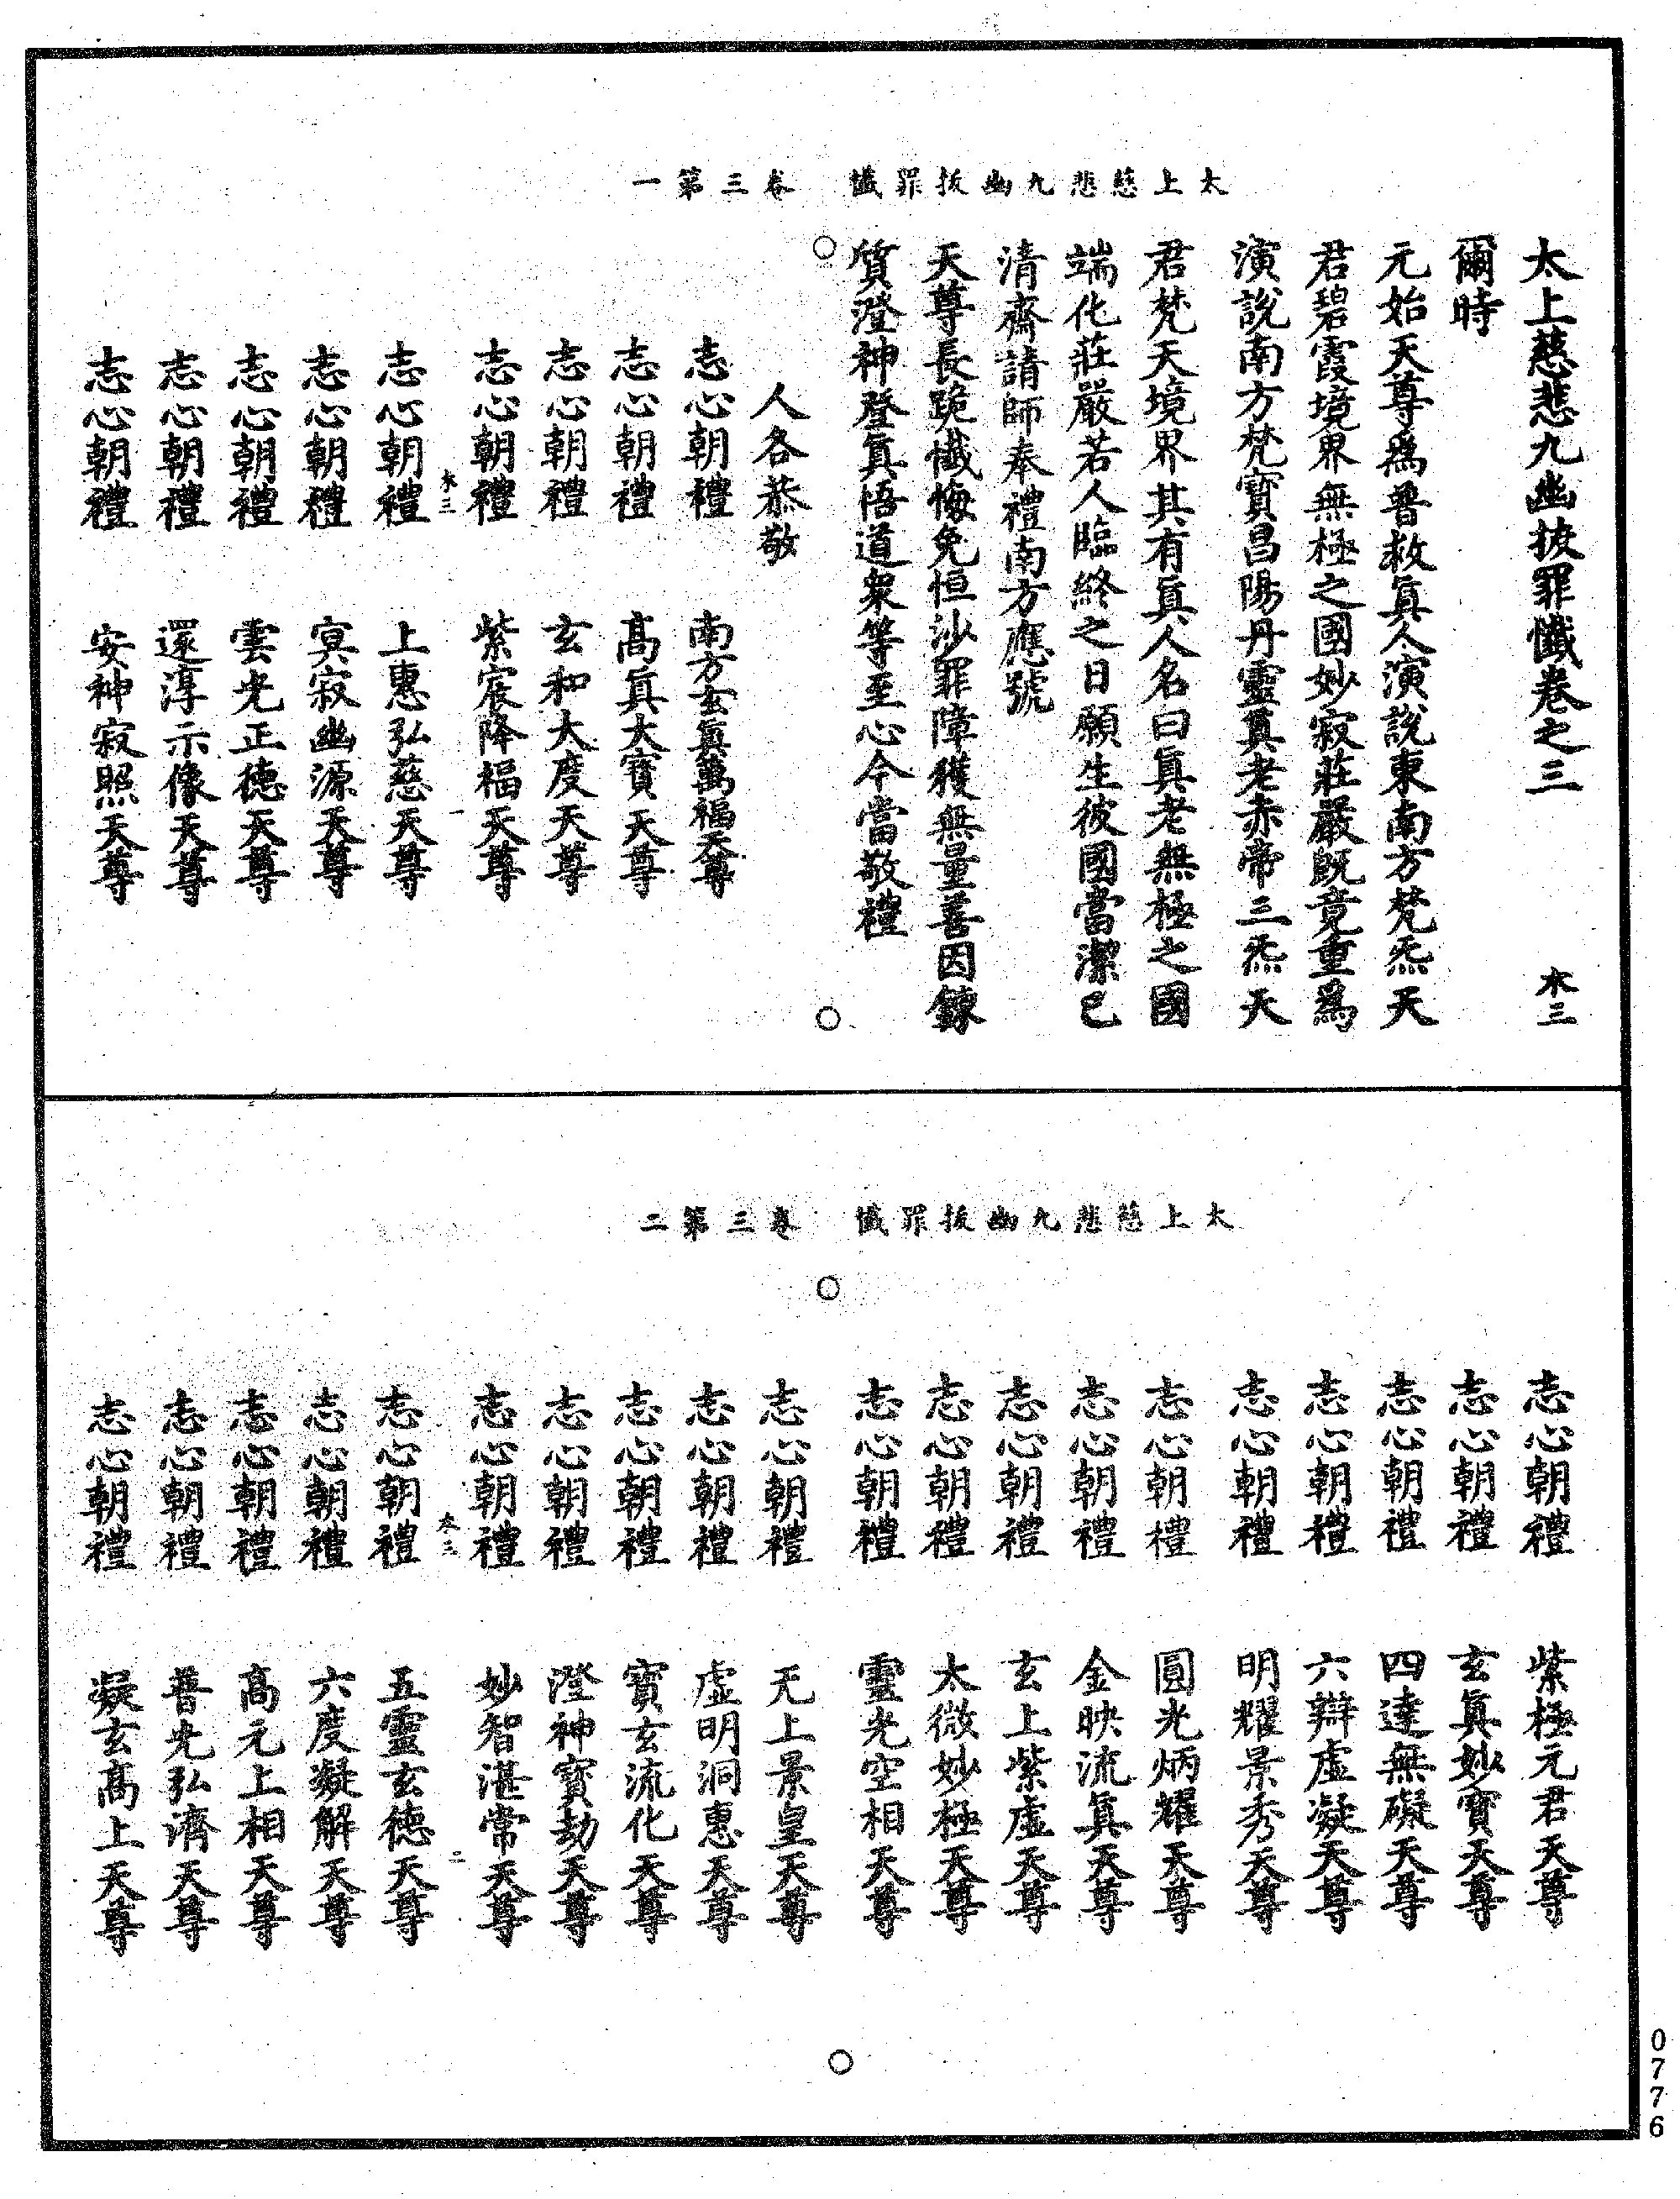 太上慈悲九幽拔罪懺　卷三第一
太上慈悲九幽拔罪懺卷之三　木三
爾時
元始天尊爲普救眞人演說東南方梵炁天
君碧霞境界無極之國妙寂莊嚴旣竟重爲
演說南方梵寶昌陽丹靈眞老赤帝三炁天
君梵天境界其有眞人名曰眞老無極之國
端化莊嚴若人臨終之日願生彼國當潔己
清齋請師奉禮南方應號
天尊長跪懺悔免恒沙罪障獲無量善因鍊
質澄神登眞悟道衆等至心今當敬禮
人各恭敬
志心朝禮　南方玄眞萬福天尊
志心朝禮　高眞大寶天尊
志心朝禮　玄和大度天尊
志心朝禮　紫宸降福天尊
木三　一
志心朝禮　上惠弘慈天尊
志心朝禮　冥寂幽源天尊
志心朝禮　雲光正德天尊
志心朝禮　還淳示像天尊
志心朝禮　安神寂照天尊
太上慈悲九幽拔罪懺　卷三第二
志心朝禮　紫極元君天尊
志心朝禮　玄眞妙寶天尊
志心朝禮　四達無礙天尊
志心朝禮　六辯虛凝天尊
志心朝禮　明耀景秀天尊
志心朝禮　圓光炳耀天尊
志心朝禮　金映流眞天尊
志心朝禮　玄上紫虛天尊
志心朝禮　太微妙極天尊
志心朝禮　靈光空相天尊
志心朝禮　无上景皇天尊
志心朝禮　虛明洞惠天尊
志心朝禮　寶玄流化天尊
志心朝禮　澄神寶劫天尊
志心朝禮　妙智湛常天尊
木三　二
志心朝禮　五靈玄德天尊
志心朝禮　六度凝解天尊
志心朝禮　高元上相天尊
志心朝禮　普光弘濟天尊
志心朝禮　凝玄高上天尊
0776